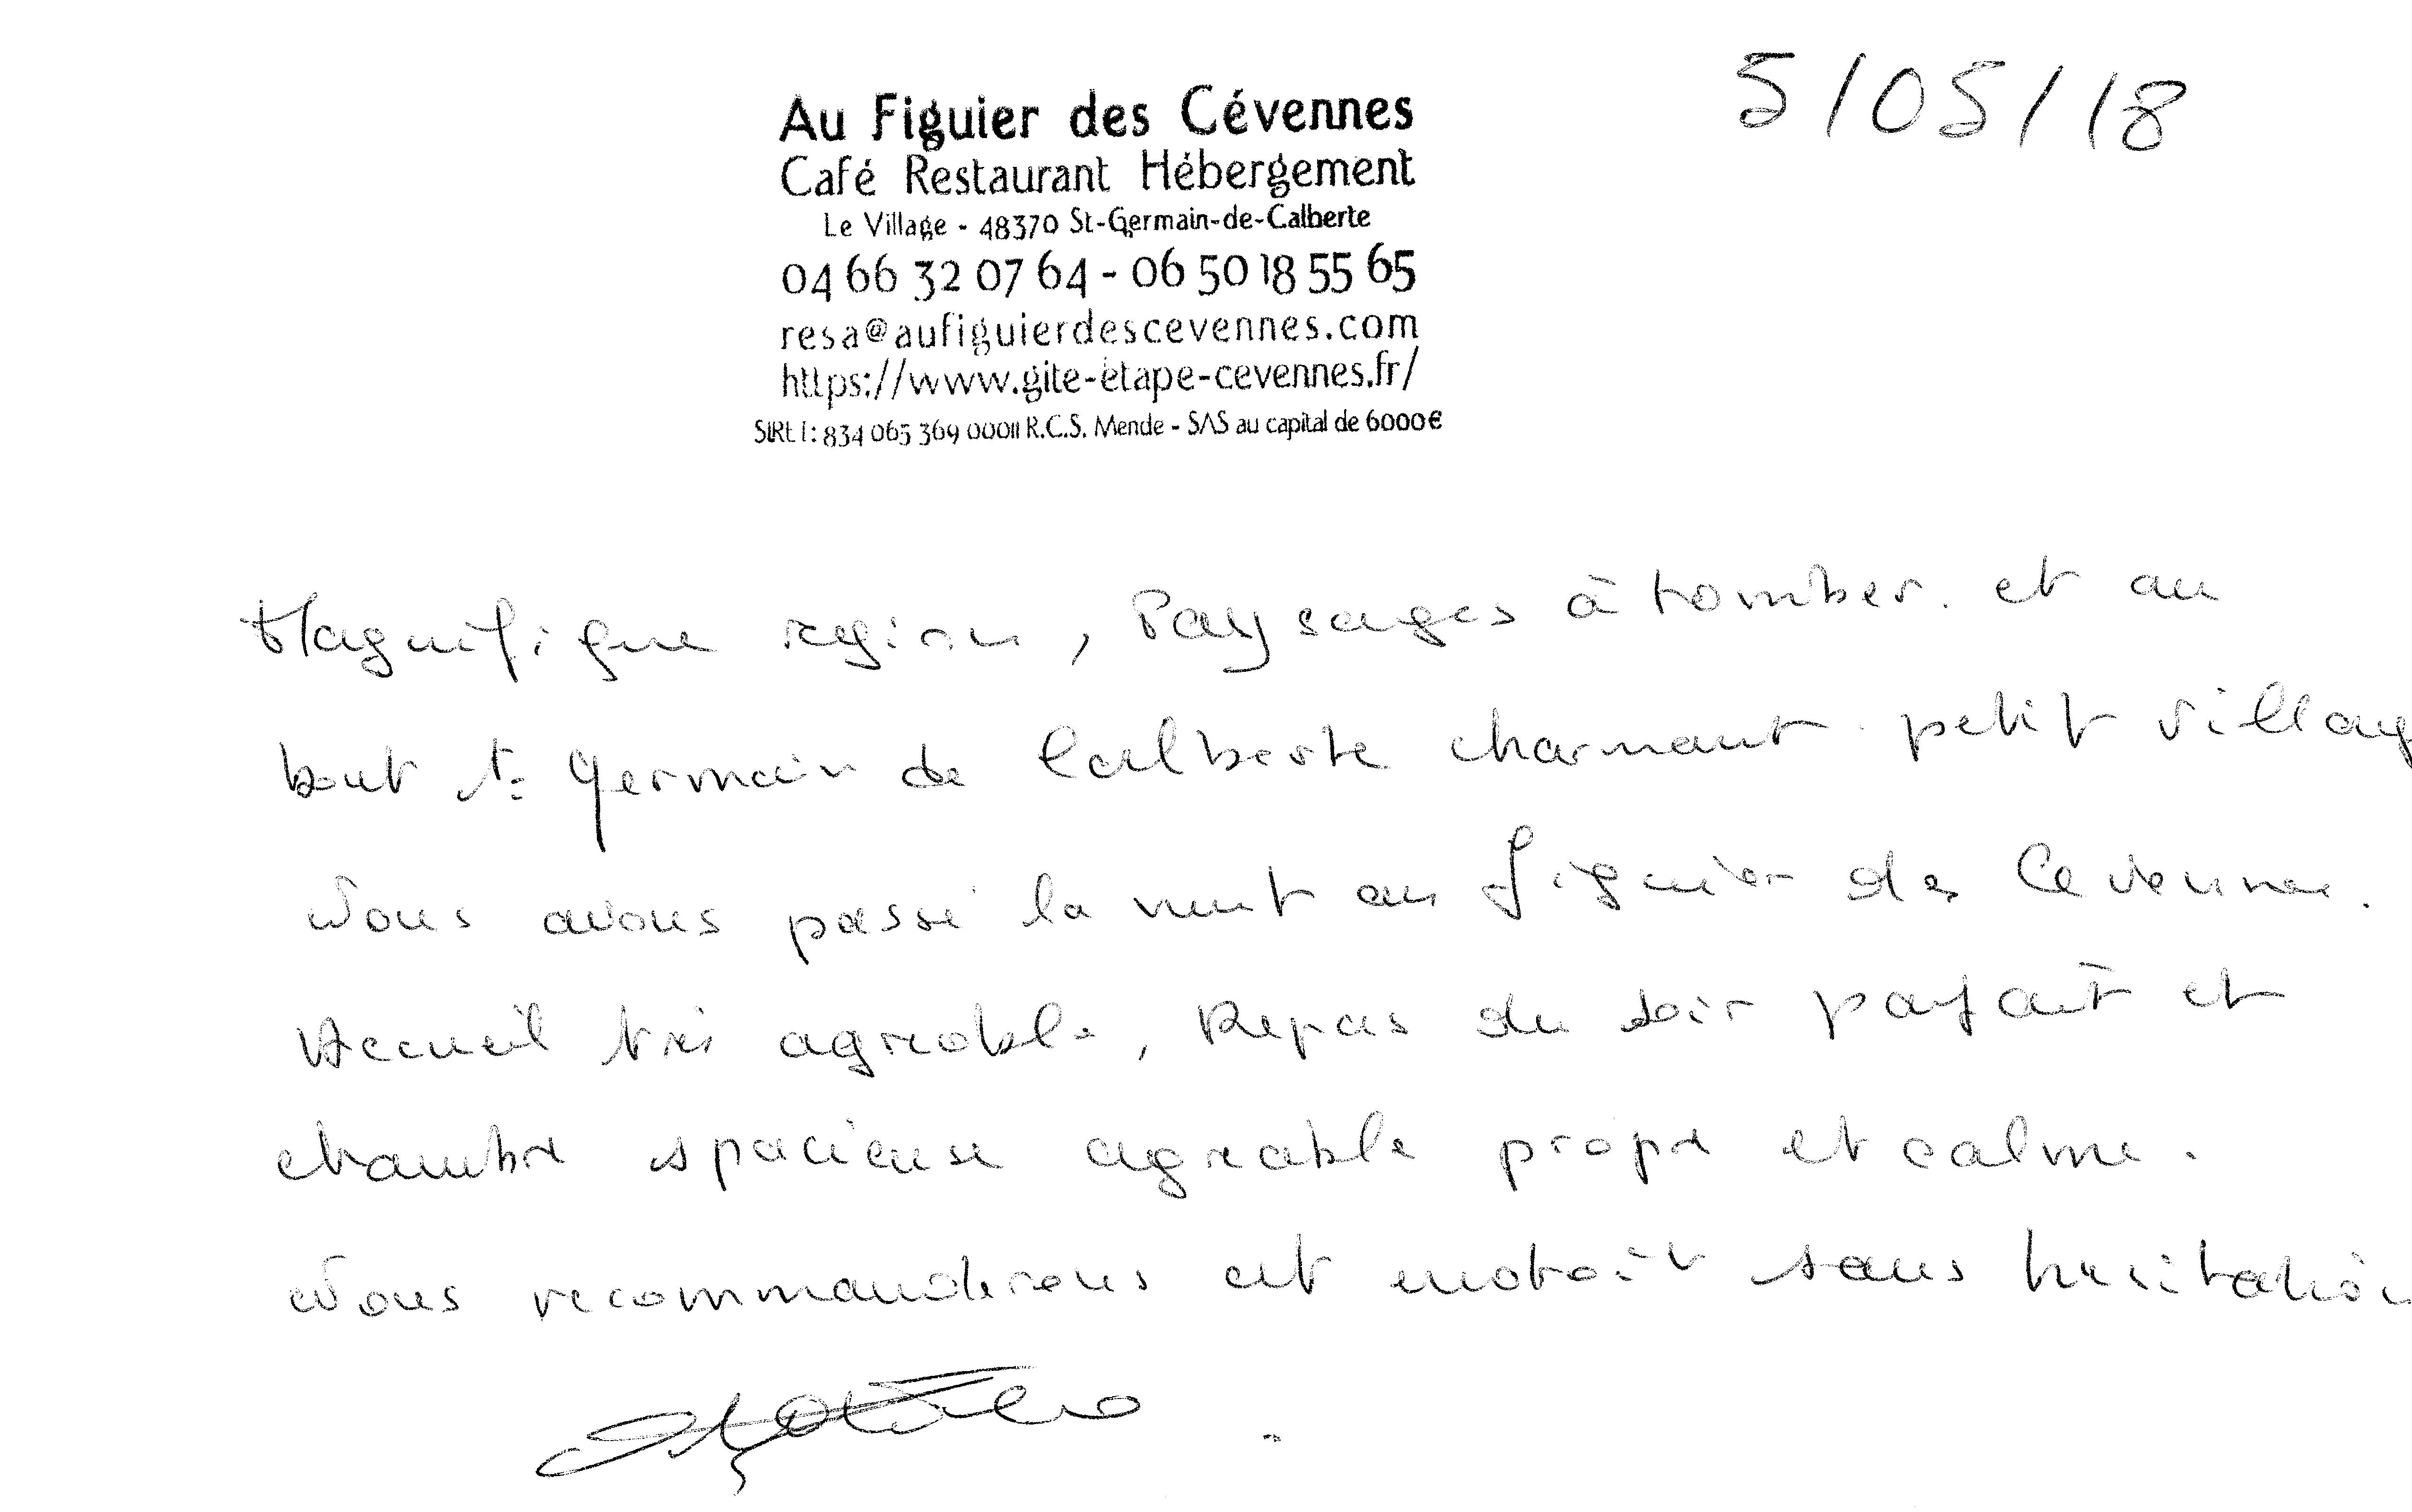 5/05/18
Au Figuier des Cévennes
Café Restaurant Hébergement
Le Village - 48370 St-Germain-de-Calberte
04 66 32 07 64 - 06 50 18 55 65
resa@aufiguierdescevennes.com
https://www.gite-etape-cevennes.fr/
SIRET: 834 065 369 00011 R.C.S. Mende - SAS au capital de 6000€
Magnifique region, Paysages à tomber. et au
bout St Germain de Calberte charmant petit villag
Nous avons passé la nuit au figuier des Cevennes.
Accueil très agreable, Repas du soir parfait et
chambre spacieuse agreable propre et calme.
Nous recommanderons cet endroit sans hesitation